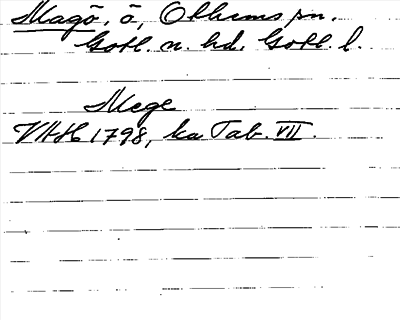 Magö, ö, Othems sn.
Gotl. n. hd. Gotl. l.
Mege
VHH 1798, ka Tab. VII.